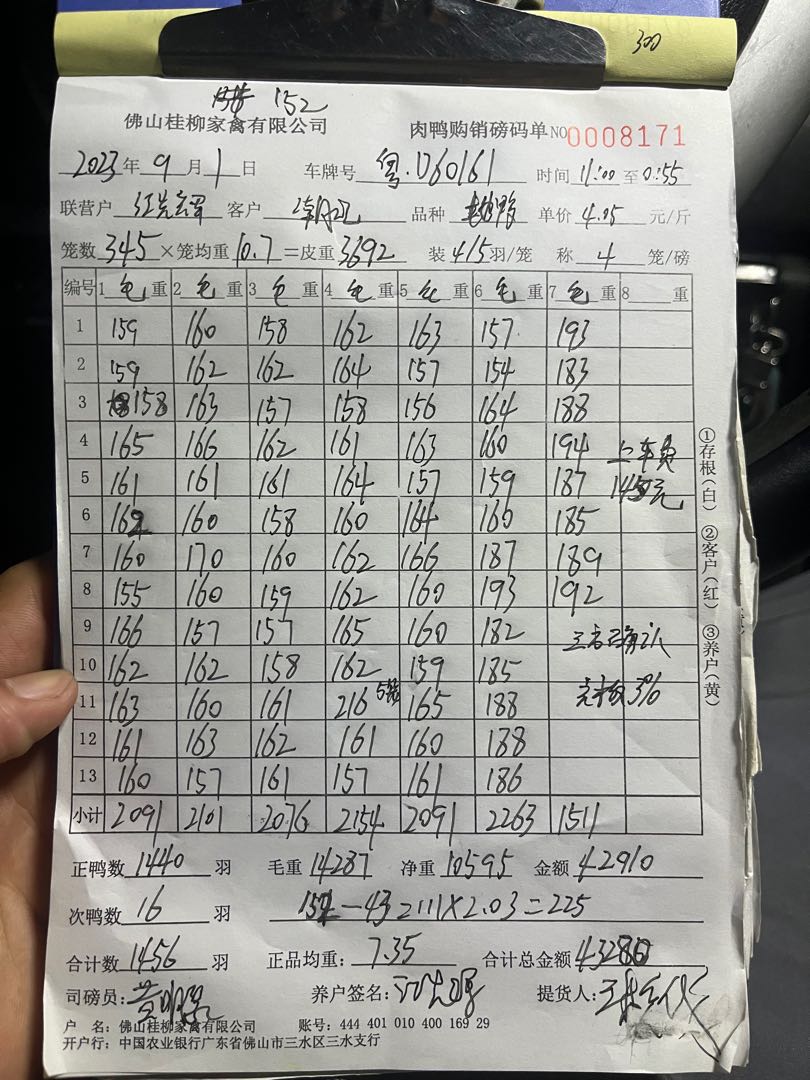 300
152
佛山桂柳家禽有限公司 肉鸭购销磅码单NO 0008171
2023年9月1日 车牌号 粤.U60161 时间 11:00 至 0:55
联营户 客户 品种 单价 4.05 元/斤
笼数 345 ×笼均重 10.7 =皮重 3692 装 4/5 羽/笼 称 4 笼/磅
编号 1 毛 重 2 毛 重 3 毛 重 4 毛 重 5 毛 重 6 毛 重 7 毛 重 8 重
1 159 160 158 162 163 157 193
2 159 162 162 164 157 154 183
3 158 163 157 158 156 164 188
4 165 166 162 161 163 160 194 上车费
5 161 161 161 164 157 159 187 145元
6 162 160 158 160 164 160 185
7 160 170 160 162 166 187 189
8 155 160 159 162 160 193 192
9 166 157 157 165 160 182 三方已确认
10 162 162 158 162 159 185
11 163 160 161 216 5笼 165 188 3%
12 161 163 162 161 160 188
13 160 157 161 157 161 186
小计 2091 2101 2076 2154 2091 2263 1511
①存根(白) ②客户(红) ③养户(黄)
正鸭数 1440 羽 毛重 14287 净重 10595 金额 42910
次鸭数 16 羽 154-43=111×2.03=225
合计数 1456 羽 正品均重: 7.35 合计总金额 43280
司磅员: 养户签名: 提货人:
户 名: 佛山桂柳家禽有限公司 账号: 444 401 010 400 169 29
开户行: 中国农业银行广东省佛山市三水区三水支行